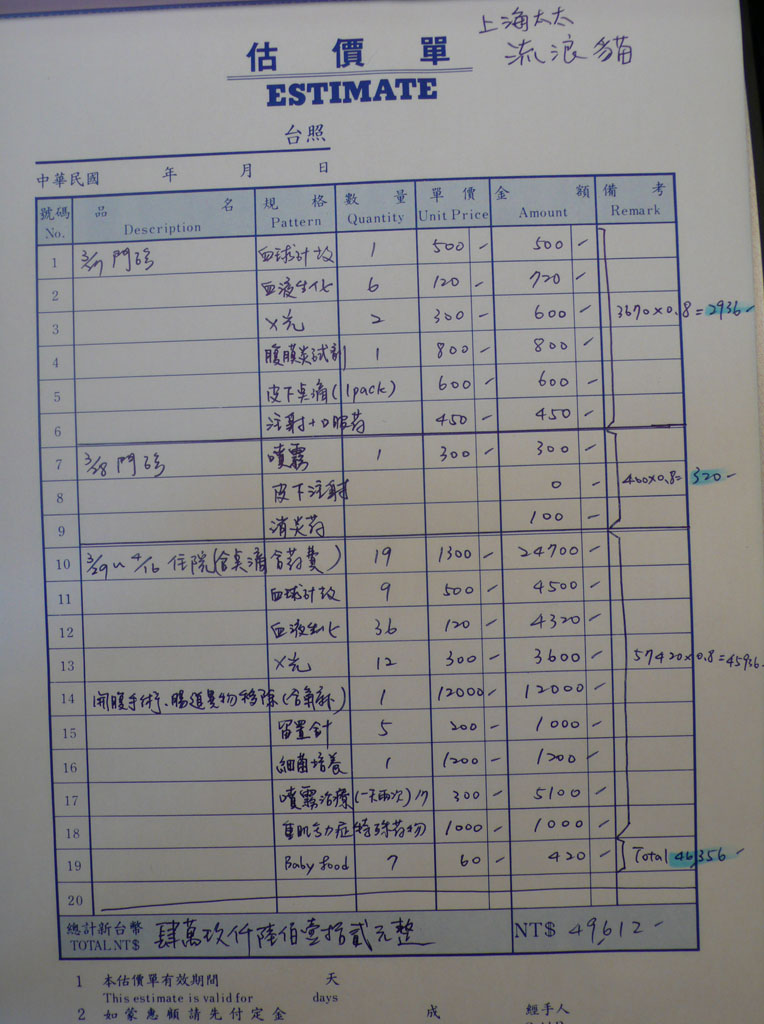 上海太太
流浪貓
估價單
ESTIMATE
台照
中華民國 年 月 日
號碼 品名 規格 數量 單價 金額 備考
No. Description Pattern Quantity Unit Price Amount Remark
1 門診 血球計數 1 500 - 500 -
2 血液生化 6 120 - 720 -
3 X光 2 300 - 600 - 3670×0.8=2936-
4 腹膜炎試劑 1 800 - 800 -
5 皮下点滴(1pack) 600 - 600 -
6 注射+口服药 450 - 450 -
7 3/28 門診 噴霧 1 300 - 300 -
8 皮下注射 0 - 400×0.8= 320-
9 消炎药 100 -
10 3/29~4/16 住院(含点滴含药費) 19 1300 - 24700 -
11 血球計数 9 500 - 4500 -
12 血液生化 36 120 - 4320 -
13 X光 12 300 - 3600 - 57420×0.8=45936-
14 開腹手術、腸道異物移除(含麻) 1 12000 - 12000 -
15 留置針 5 200 - 1000 -
16 細菌培養 1 1200 - 1200 -
17 噴霧治療(一天兩次) 17 300 - 5100 -
18 重肌无力症特殊药物 1000 - 1000 -
19 Baby food 7 60 - 420 - Total 46,356-
20
總計新台幣 肆萬玖仟陸伯壹拾貳元整 NT$ 49612-
TOTAL NT$
1 本估價單有效期間 天
This estimate is valid for days
2 如蒙惠顧請先付定金 成 經手人